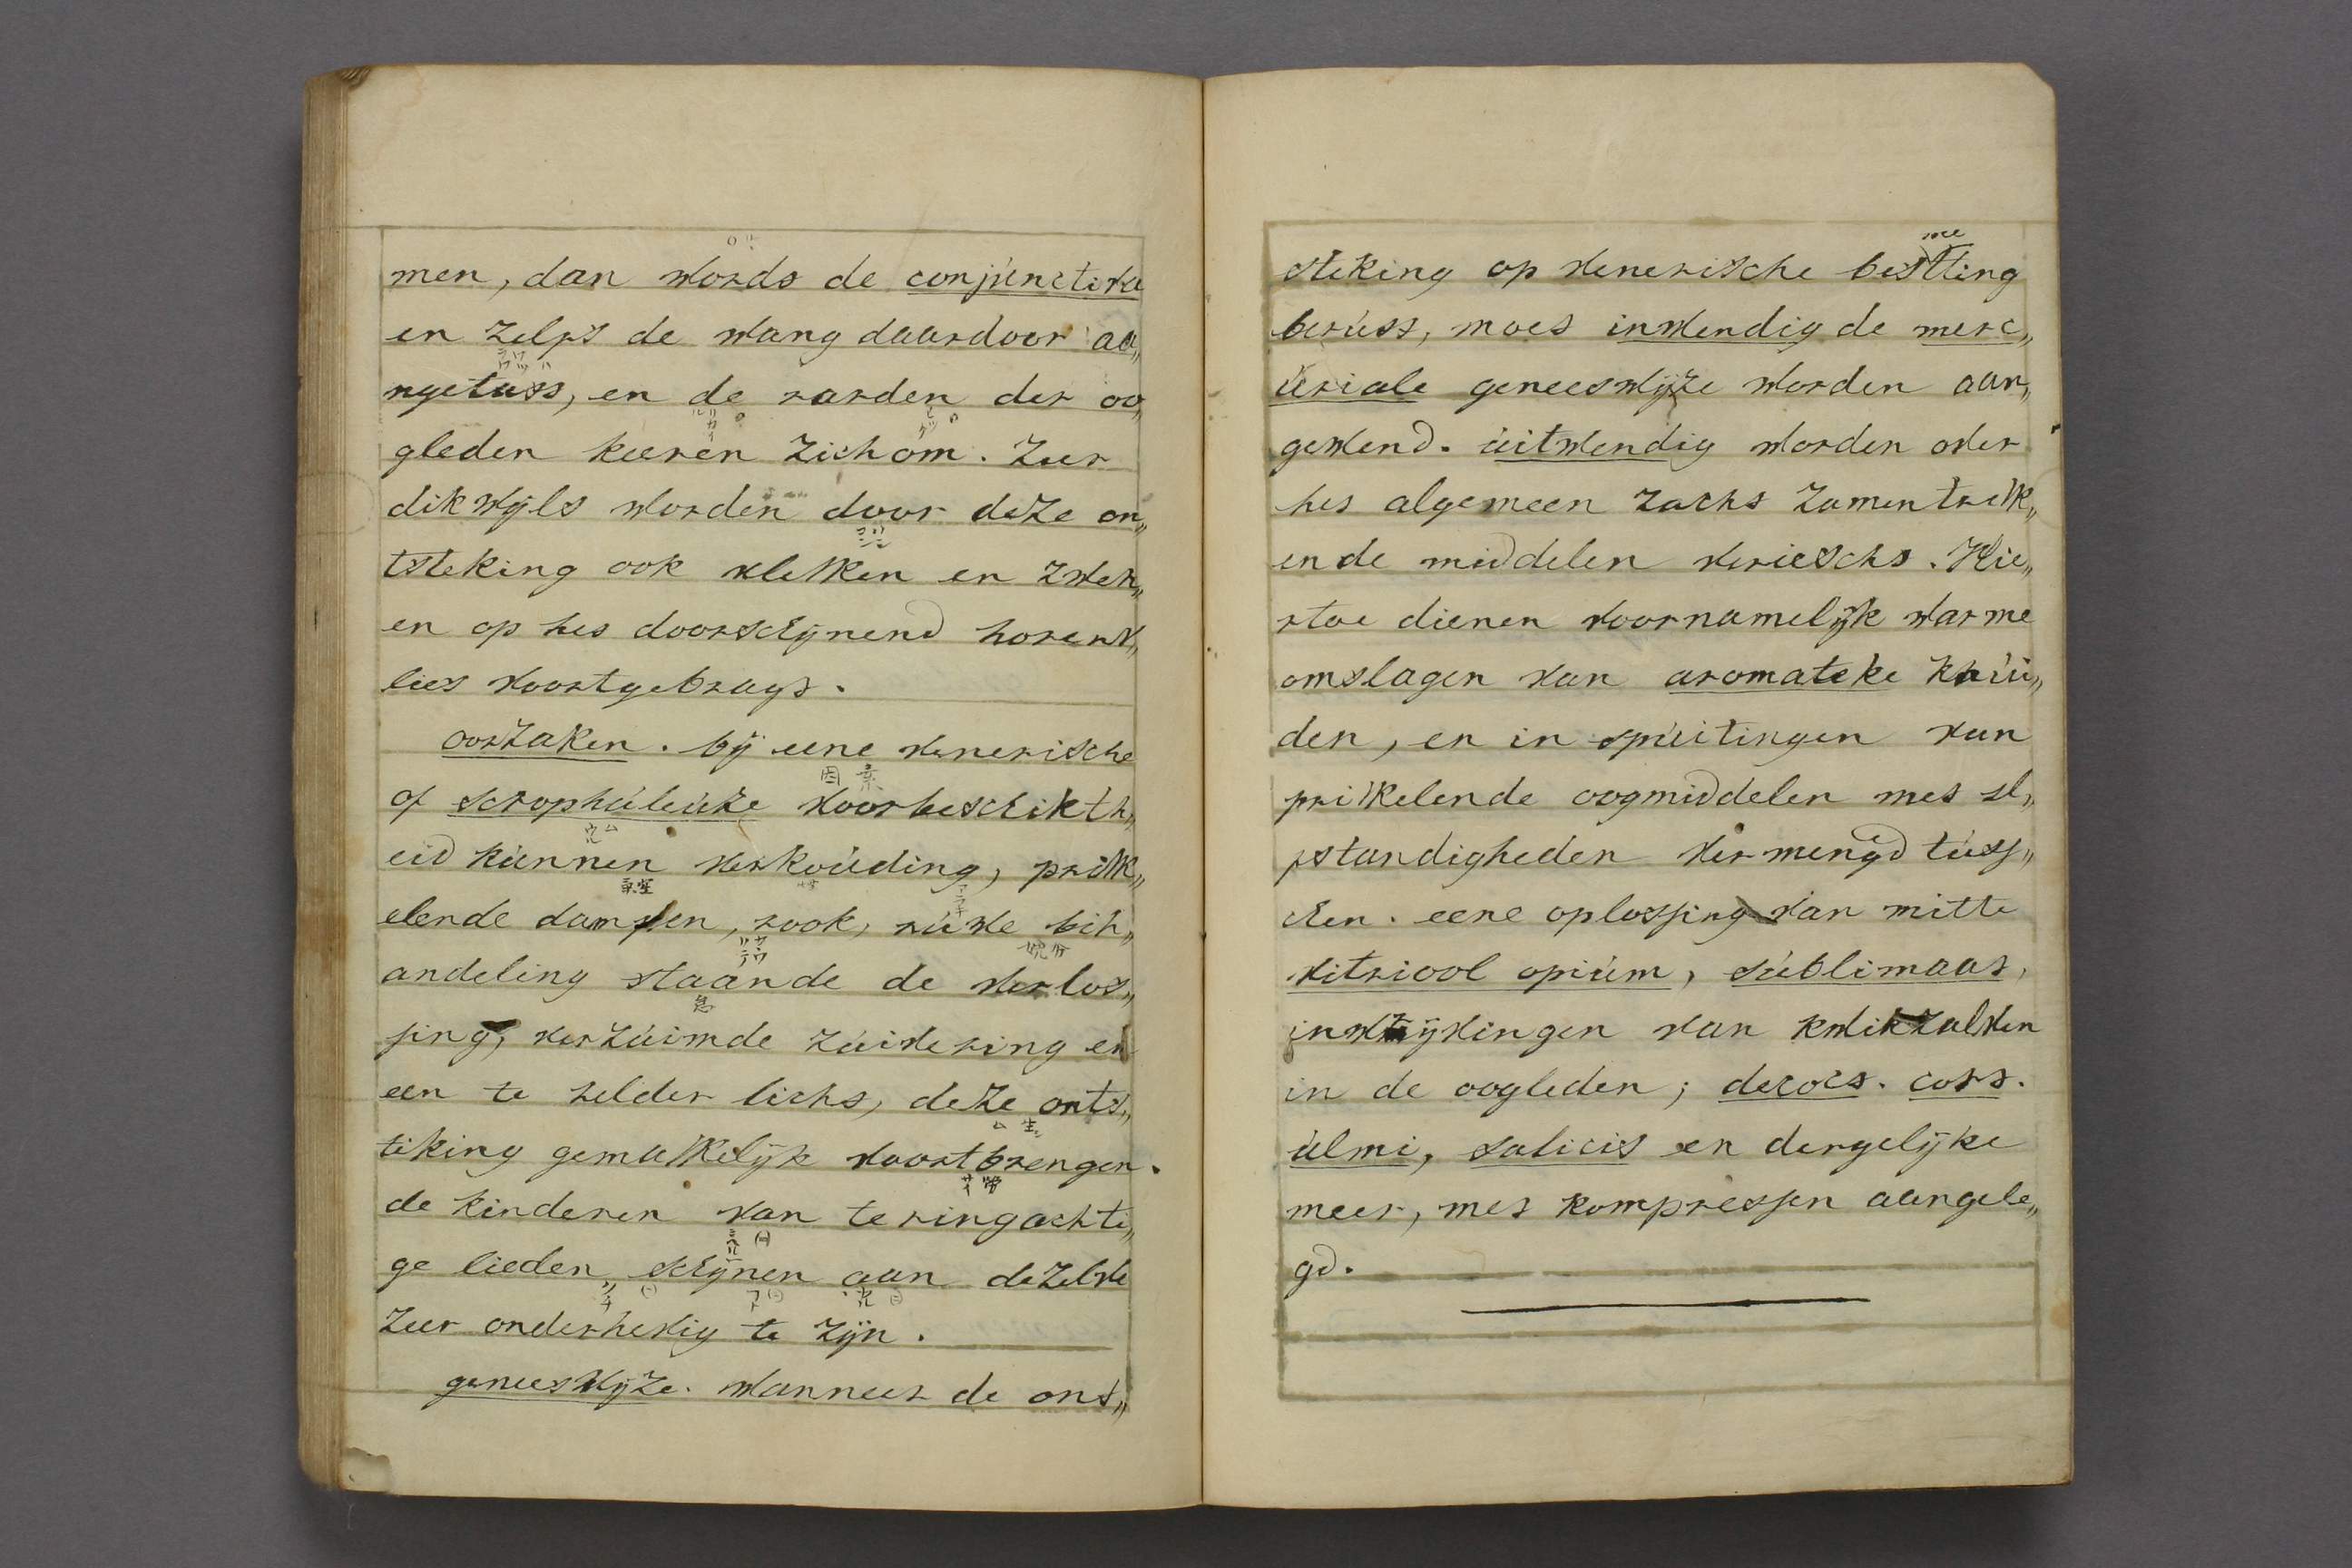 men, dan words de conjúnctiva
en zelfs de wang daardoor aa„
ngetass, en de randen der oo„
gleden keeren zich om. Zeer
dikwÿls worden door deze on„
tsteking ook vlekken en zwer„
en op hes doorschÿnend horenv„
lies voortgebrags.
oorzaken. bÿ eene venerische
of scrophúleúze voorbeschikth„
eid kúnnen verkoúding, prikk„
elende dampen, rook, rúwe beh„
andeling staande de verlos„
sing, verzúimde zúivering en
een te helder lichs, deze onts„
teking gemakkelÿk voortbrengen.
de kinderen van teringachti„
ge lieden, schÿnen aan dezelve
zeer onderhevig te zÿn.
geneeswÿze. wanneer de ons„
steking op venerische besmetting
berúss, moes inwendig de merc„
úriale geneeswÿze worden aan„
gewend. úitwendig worden over
hes algemeen zachs zamentrekk„
ende middelen vereischs. Hie„
rtoe dienen voornamelÿk warme
omslagen van aromateke krúi„
den, en in spúitingen van
prikkelende oogmiddelen mes sl„
ijstandigheden vermengd túss„
chen. eene oplossing van witte
vitriool opiúm, súblimaas,
inwrÿvingen van kwikzalven
in de oogleden; decocs. cors.
úlmi, salicis en dergelÿke
meer, mes kompressen aangele„
gd.